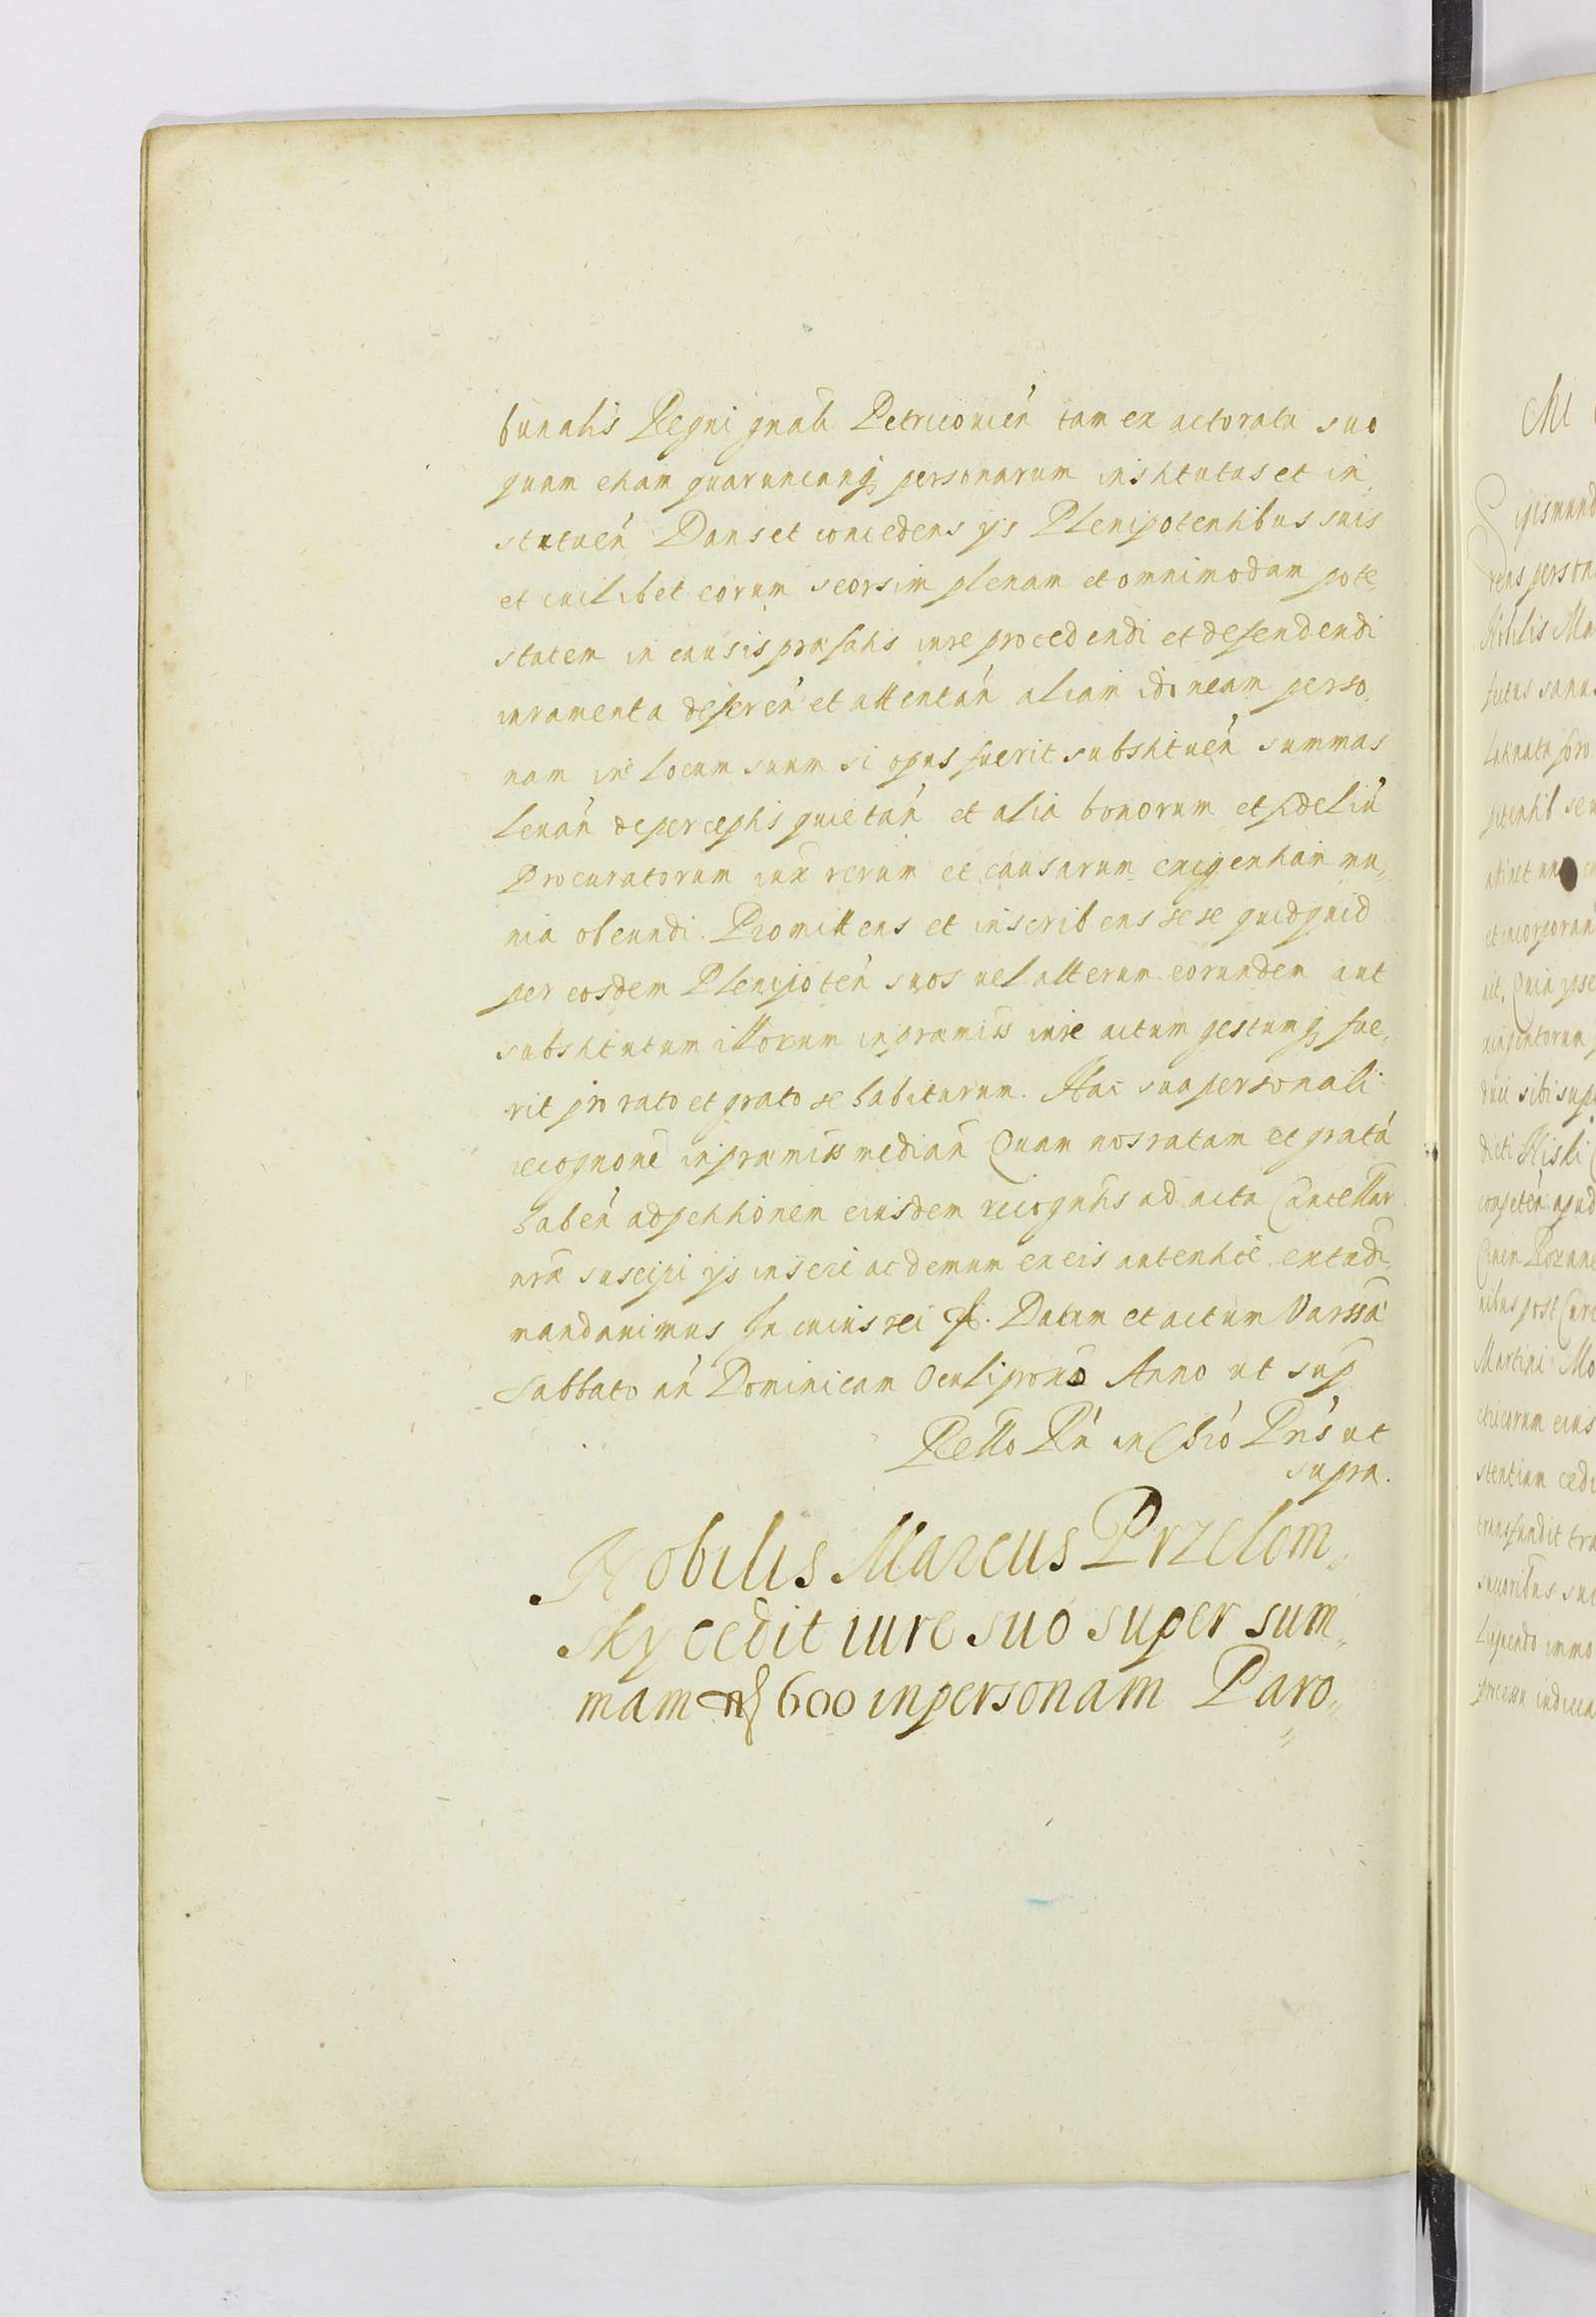 bunalis Regni gnali Petricouien tam ex actoratu suo
quam etiam quaruncunq personarum institutas et in„
statuen Dans et concedens ijs Plenipotentibus suis
et cuilibet eorum seorsim plenam et omnimodam pote„
statem in causis præfatis iure procedendi et defendendi
iuramenta deferen et attentan aliam idoneam perso„
nam in locum suum si opus fuerit substituen summas
leuan de perceptis quietan et alia bonorum et fidelium
Procuratorum iuxa rerum et causarum exigentiam mu„
nia obeundi. Promittens et inscribens sese quidquid
per eosdem Plenipoten suos uel alterum eorundem aut
substitutum illorum in præmiss iure actum gestumq fue„
rit pro rato et grato se habiturum. Hac sua personali
recognone in præmiss median Quam nos ratam et gratam
haben ad petitionem eiusdem recogntis ad acta Cancellar
nræ suscipi ijs inseri ac demum ex eis autentice extradi
mandauimus In cuius rei fi. Datum et actum Varssa
Sabbato an Dominicam Oculi prono Anno ut sup
Rello Rn in Cbio Pris ut
supra.
Nobilis Marcus Przelom„
sky cedit iure suo super sum„
mam fl 600 in personam Paro„
M
Sigismund
rens person
Nobilis Ma
fectus sanus
et incorporan
ait. Quia ipse
uingentorum
duci sibi sup
dicti Kiski
competen apud
nibus post
Martini Mo
eius
stentiam cedi
transfundit tra
suis